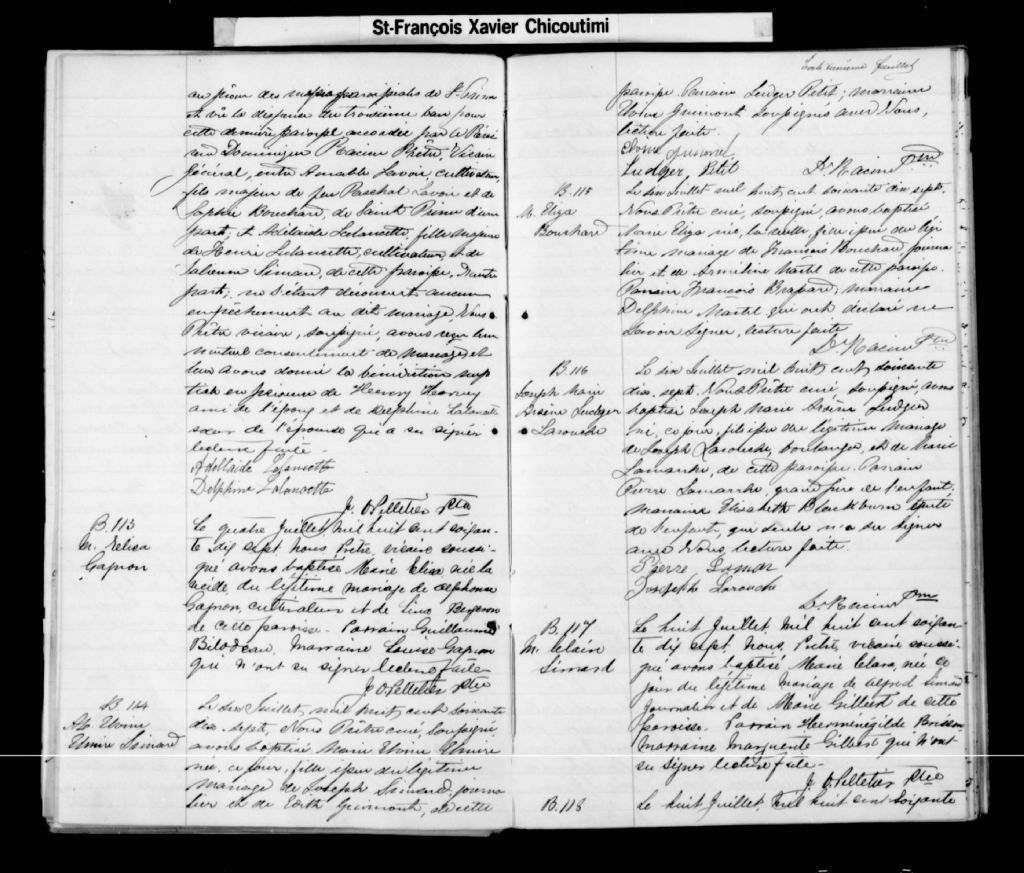 St-François Xavier Chicoutimi
au prône des messes paroissiales de St Prime
et vu la dispense du troisième ban pour
cette dernière paroisse accordée par le Révé
rend Dominique Racine Prêtre, Vicaire
général, entre Amable Savoie, cultivateur,
fils majeur de feu Paschal Savoie et de
Sophie Bouchard, de Saint Prime d'une
part; et Adélaïde Lalancette, fille majeure
de Henri Lalancette, cultivateur, et de
Simard, de cette paroisse, d'autre
part; ne s'étant découvert aucun
empêchement au dit mariage Nous
Prêtre vicaire, soussigné, avons reçu leur
mutuel consentement de mariage et
leur avons donné la bénédiction nup
tiale en présence de Henry
ami de l'époux et de Delphine Lalancette
sœur de l'épouse qui a su signer
lecture faite.
Adélaide Lalancette
Delphine Lalancette
J. O Pelletier Ptre
B. 113
M. Relisa
Gagnon
Le quatre Juillet, mil huit cent soixan-
te dix sept. Nous Prêtre, vicaire soussi-
gné avons baptisé Marie Elisa, née la
veille, du légitime mariage de Alphonse
Gagnon, cultivateur et de Bergeron
de cette paroisse. Parrain Guillaume
Bilodeau, Marraine Louise Gagnon
qui n'ont su signer lecture faite
J. O Pelletier Ptre
B. 114
M. Elvine
Elmire Simard
Le six Juillet, mil huit cent soixante
dix sept, Nous Prêtre curé, soussigné,
avons baptisé Marie Elvine Elmire
née, ce jour, fille issue du légitime
mariage de Joseph Simard journa
lier et de Edith Guimont, de cette
feuillet
paroisse. Parrain Ludger Petit; marraine
Guimont soussignés avec Nous,
lecture faite.
Ludger, Petit
D. Racine Ptre
B. 115
M. Eliza
Bouchard
Le six Juillet mil huit cent soixante dix sept,
Nous Prêtre curé, soussigné, avons baptisé
Marie Eliza née, la veille, fille issue du légi
time mariage de François Bouchard journa
lier et de Armeline Martel de cette paroisse.
Parrain François Brassard; marraine
Delphine Martel qui ont déclaré ne
savoir signer, lecture faite
D. Racine Ptre
B. 116
Joseph Marie
Arsène Ludger
Larouche
Le six Juillet mil huit cent soixante
dix-sept, Nous Prêtre curé, soussigné, avons
baptisé Joseph Marie Arsène Ludger
né, ce jour, fils issu du légitime mariage
de Joseph Larouche, boulanger, et de Marie
Lamarche, de cette paroisse. Parrain
Pierre Lamarche, grand père de l'enfant.
Marraine Elisabeth Blackburn
de l'enfant, qui seule n'a su signer
avec Nous, lecture faite.
Pierre Lamar
Joseph Larouche
D. Racine Ptre
B. 117
M. Clair
Simard
Le huit Juillet, mil huit cent soixan-
te dix sept, Nous, Prêtre, vicaire soussi-
gné avons baptisé Marie Clara, née ce
jour du légitime mariage de Alfred Simard
journalier et de Marie Gilbert de cette
paroisse. Parrain Herménégilde Brisson
Marraine Marguerite Gilbert qui n'ont
su signer lecture faite.
J. O Pelletier Ptre
B. 118
Le huit Juillet, mil huit cent soixante